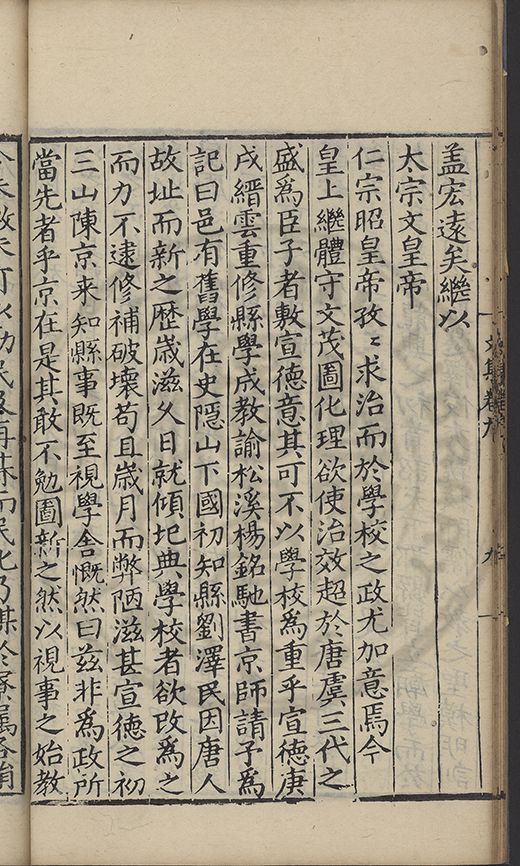 孟宏遠矣繼以
太宗文皇帝
仁宗昭皇帝孜〻求治而於學校之政尤加意焉今
皇上繼體守文茂圖化理欲使治效超於唐虞三代之
盛為臣子者敷宣德意其可不以學校為重乎宣德庚
戌縉雲重修縣學成教諭松溪楊銘馳書京師請予為
記曰邑有舊學在史隱山下國初知縣劉澤民因唐人
故址而新之歷歲滋久日就傾圮典學校者欲改為之
而力不逮修補破壞苟且歲月而弊陋滋甚宣德之初
三山陳京来知縣事既至視學舍慨然曰茲非為政所
當先者乎京在是其敢不勉圖新之然以視事之始教